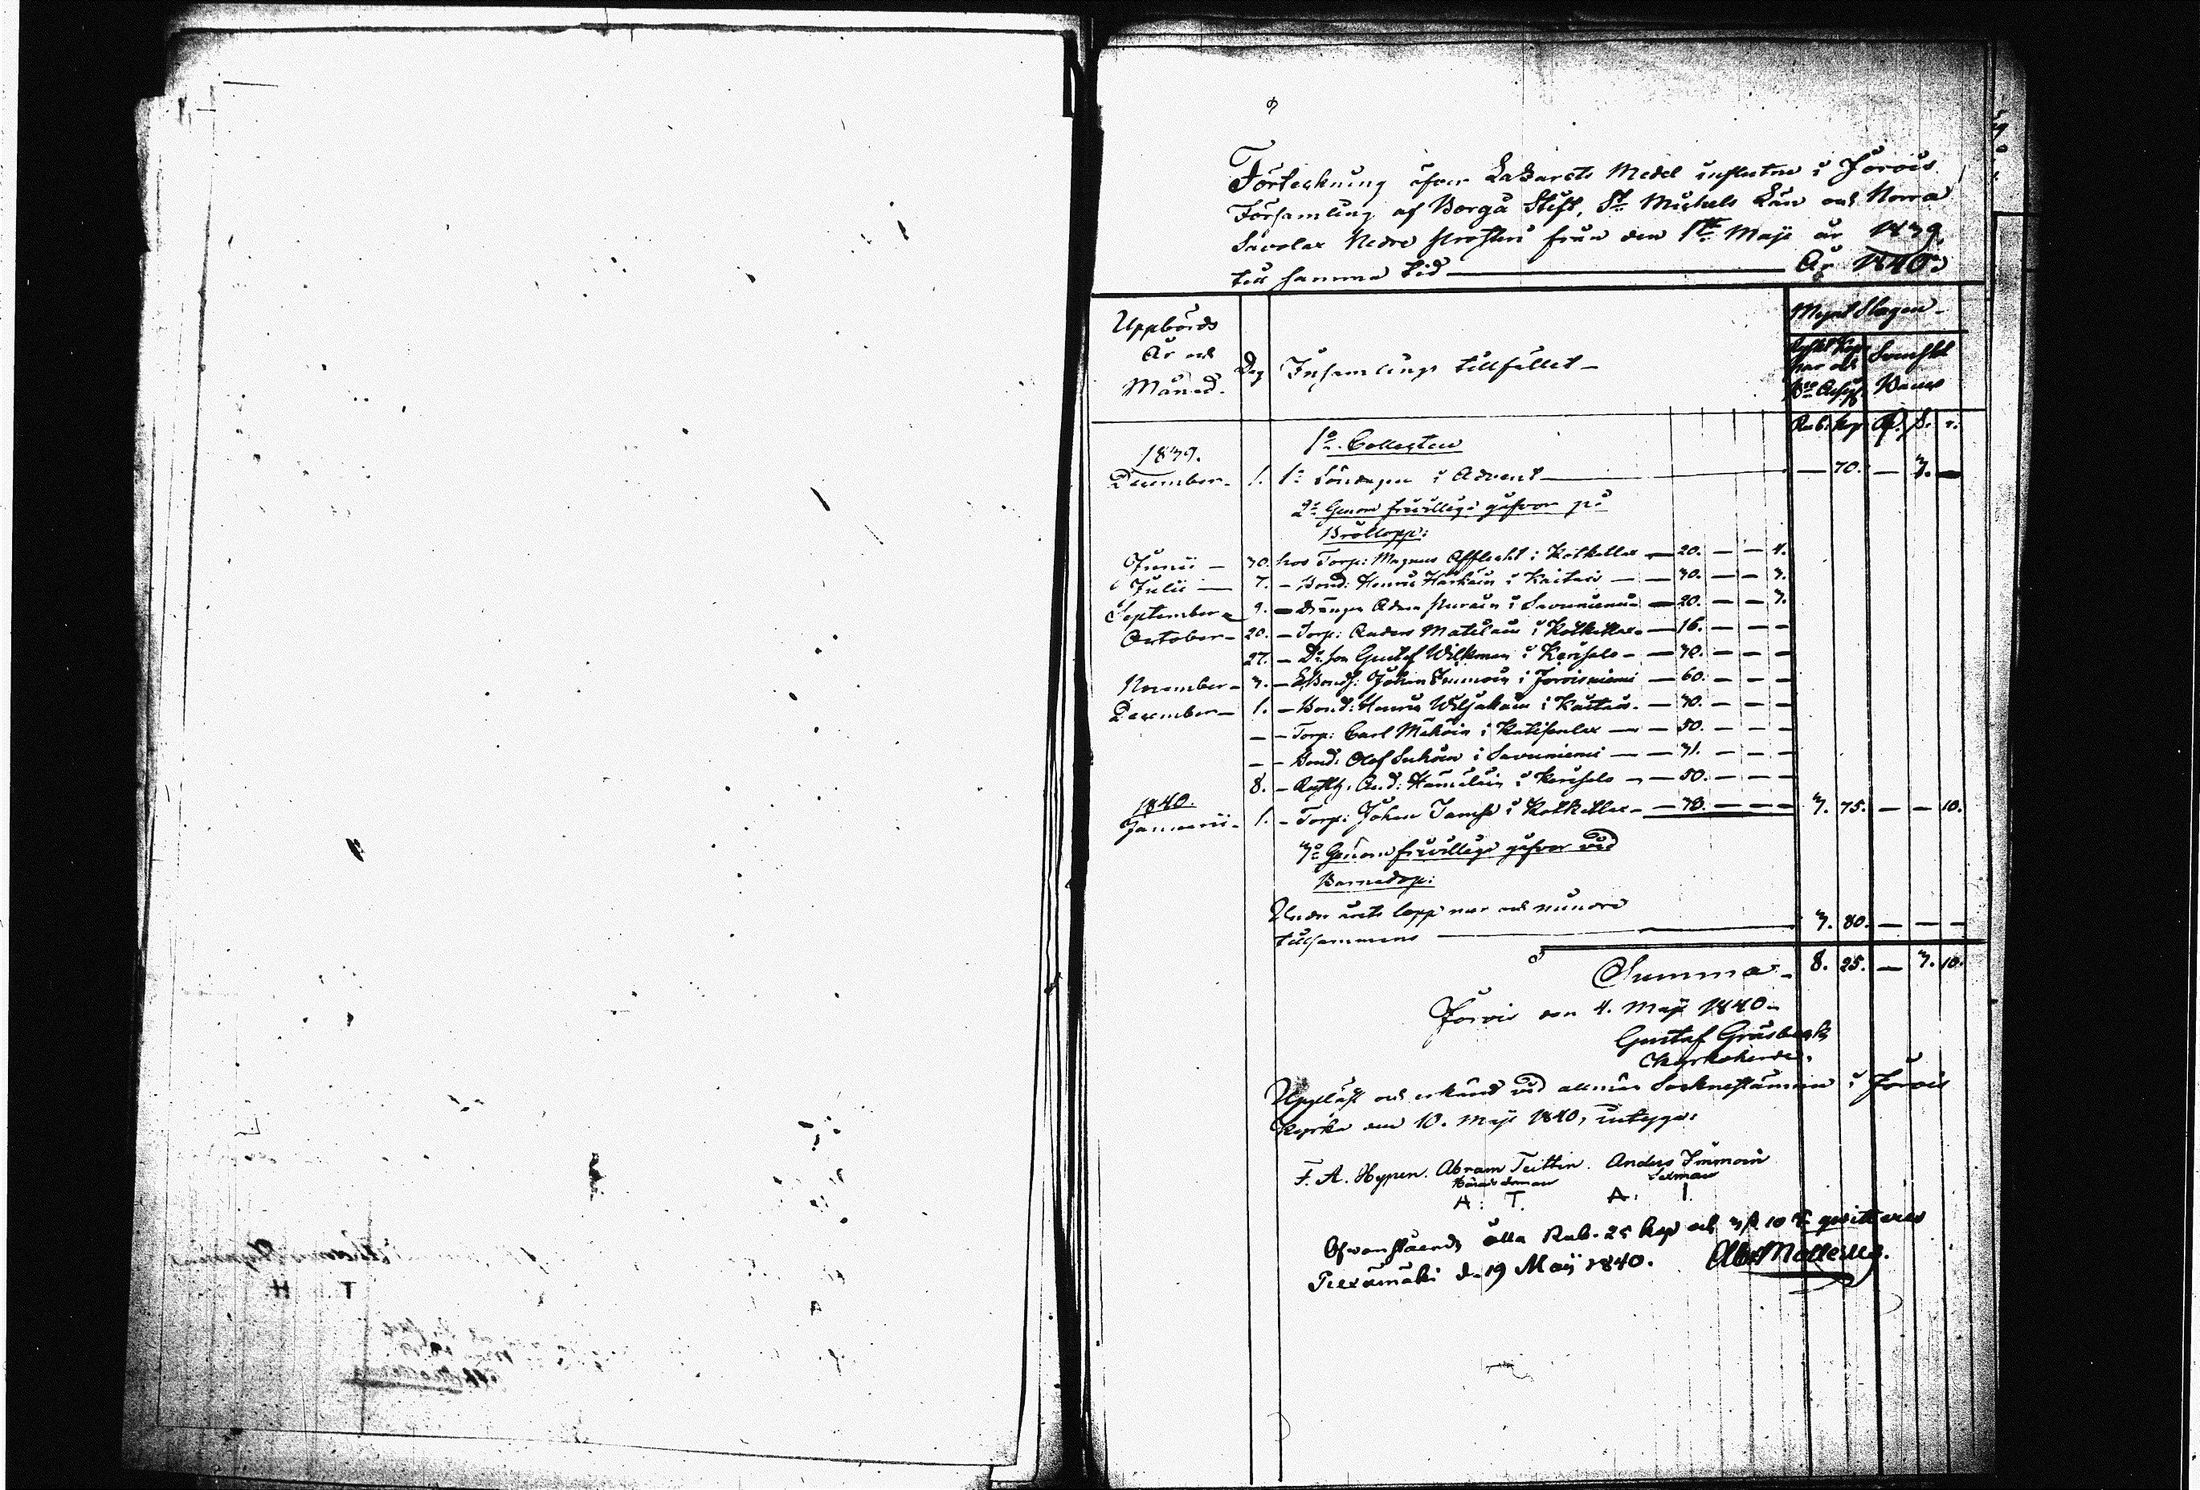 Förteckning öfver Lazaretts Medel influtne i Jorois
Församling af Borgå Stift, St Michels Län och Norra
Savolax Nedre Prosteri från den 1ste Maji år 1839,
till samma tid — År 1840.
Uppbörds
År och
Månad.
Dag
Insamlings tillfället
Mynt Slagen
Ryskt Kop-
par och
Bco Assign.
Svenskt
Rub. kop. R. s. r.
1839.
1o Collecten
December 1. 1a Söndagen i Advent — 70. — 3. —
2o Genom frivillige gåfvor på
Bröllopp:
Junii — 30. hos Torp: Magnus Afflecht i Kotkatlax — 20. — — 4.
Julii — 7. — Bond: Henric Härkäin i Kaitais — 30. — — 3.
September 9. — Drängen Adam Puruin i Savuniemi — 20. — — 3.
October 20. — Torp: Anders Matilain i Kotkatlax — 16. — — —
27. — Do son Gustaf Wilkman i Kerisalo — 30. — — —
November 3. — Bonds: Johan Immoin i Joroisniemi — 60. — — —
December 1. — Bond: Henric Wiljakain i Kaitais — 30. — — —
— — Torp: Carl Mähöin i Katisenlax — 50. — — —
— — Bond: Olof Suhoin i Savuniemi — 31. — — —
8. — And: Hämäläin i Kerisalo — 50. — — —
1840.
Januarii 1. — Torp: Johan Tamse i Kotkatlax — 38. — — — 3. 75. — — 10.
3o Genom frivillige gåfvor vid
Barnedop:
Under årets lopp mer och mindre
tillsammans — 3. 80. — — —
Summa 8. 25. — 3. 10.
Jorois den 4. Maji 1840.
Gustaf Gråsbeck
Kyrkoherde.
Uppläst och erkänd vid allmän Socknestämma i Jorois
Kyrka den 10. Maji 1840, intyga:
F. A. Hypen. Abram Teittin. Anders Immoin
Häradsdomare Sexman
A. T. A. I.
Ofvanstående åtta Rub. 25 kop och 3 s 10 r quitteras
Piexämäki d. 19 Maij 1840. Abr Molleriis.